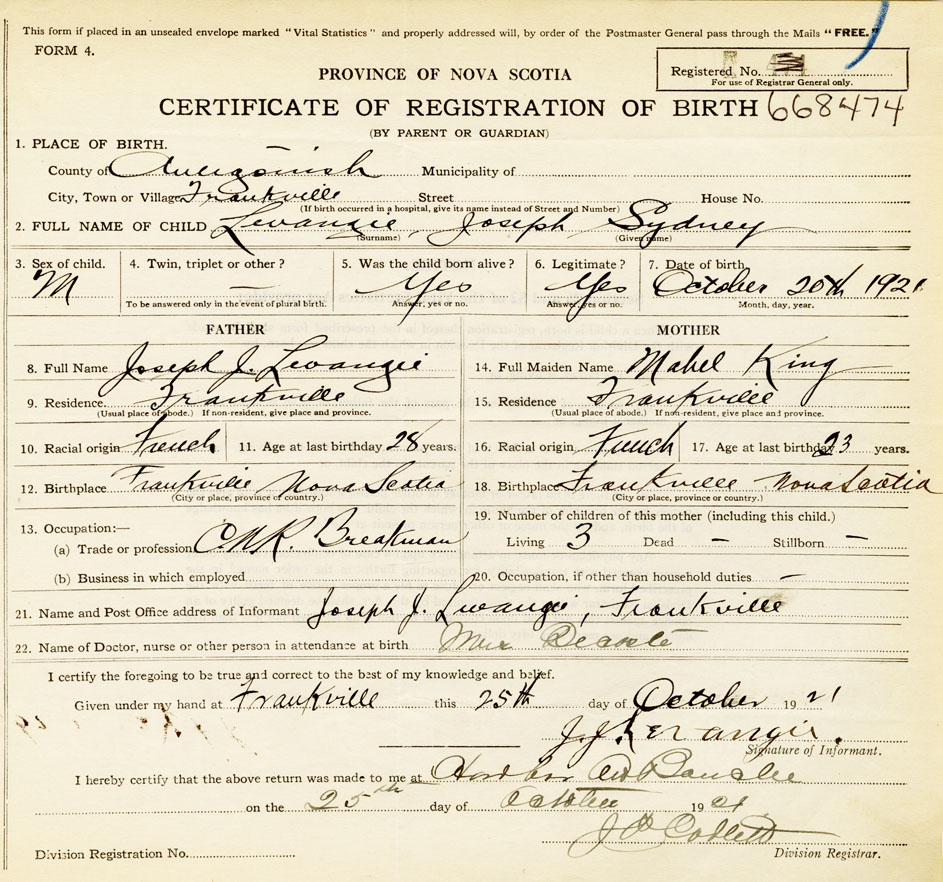 This form if placed in an unsealed envelope marked "Vital Statistics" and properly addressed will, by order of the Postmaster General pass through the Mails "FREE."
FORM 4.
Registered No.
For use of Registrar General only.
PROVINCE OF NOVA SCOTIA
CERTIFICATE OF REGISTRATION OF BIRTH 668474
(BY PARENT OR GUARDIAN)
1. PLACE OF BIRTH.
County of Antigonish Municipality of
City, Town or Village Frankville Street House No.
(If birth occurred in a hospital, give its name instead of Street and Number)
2. FULL NAME OF CHILD Levangie, Joseph Sydney
(Surname) (Given name)
3. Sex of child. 4. Twin, triplet or other? 5. Was the child born alive? 6. Legitimate? 7. Date of birth
M — Yes Yes October 20th 1921
To be answered only in the event of plural birth. Answer, yes or no. Answer, yes or no. Month, day, year.
FATHER MOTHER
8. Full Name Joseph J. Levangie 14. Full Maiden Name Mabel King
9. Residence Frankville 15. Residence Frankville
(Usual place of abode.) If non-resident, give place and province. (Usual place of abode.) If non-resident, give place and province.
10. Racial origin French 11. Age at last birthday 28 years. 16. Racial origin French 17. Age at last birthday 23 years.
12. Birthplace Frankville Nova Scotia 18. Birthplace Frankville Nova Scotia
(City or place, province or country.) (City or place, province or country.)
13. Occupation:— 19. Number of children of this mother (including this child.)
(a) Trade or profession C.N.R. Breakman Living 3 Dead — Stillborn —
(b) Business in which employed 20. Occupation, if other than household duties —
21. Name and Post Office address of Informant Joseph J. Levangie, Frankville
22. Name of Doctor, nurse or other person in attendance at birth Mrs
I certify the foregoing to be true and correct to the best of my knowledge and belief.
Given under my hand at Frankville this 25th day of October 1921
J. J. Levangie.
Signature of Informant.
I hereby certify that the above return was made to me at Harbor Au Bouche
on the 25th day of October 1921
Division Registration No. Division Registrar.